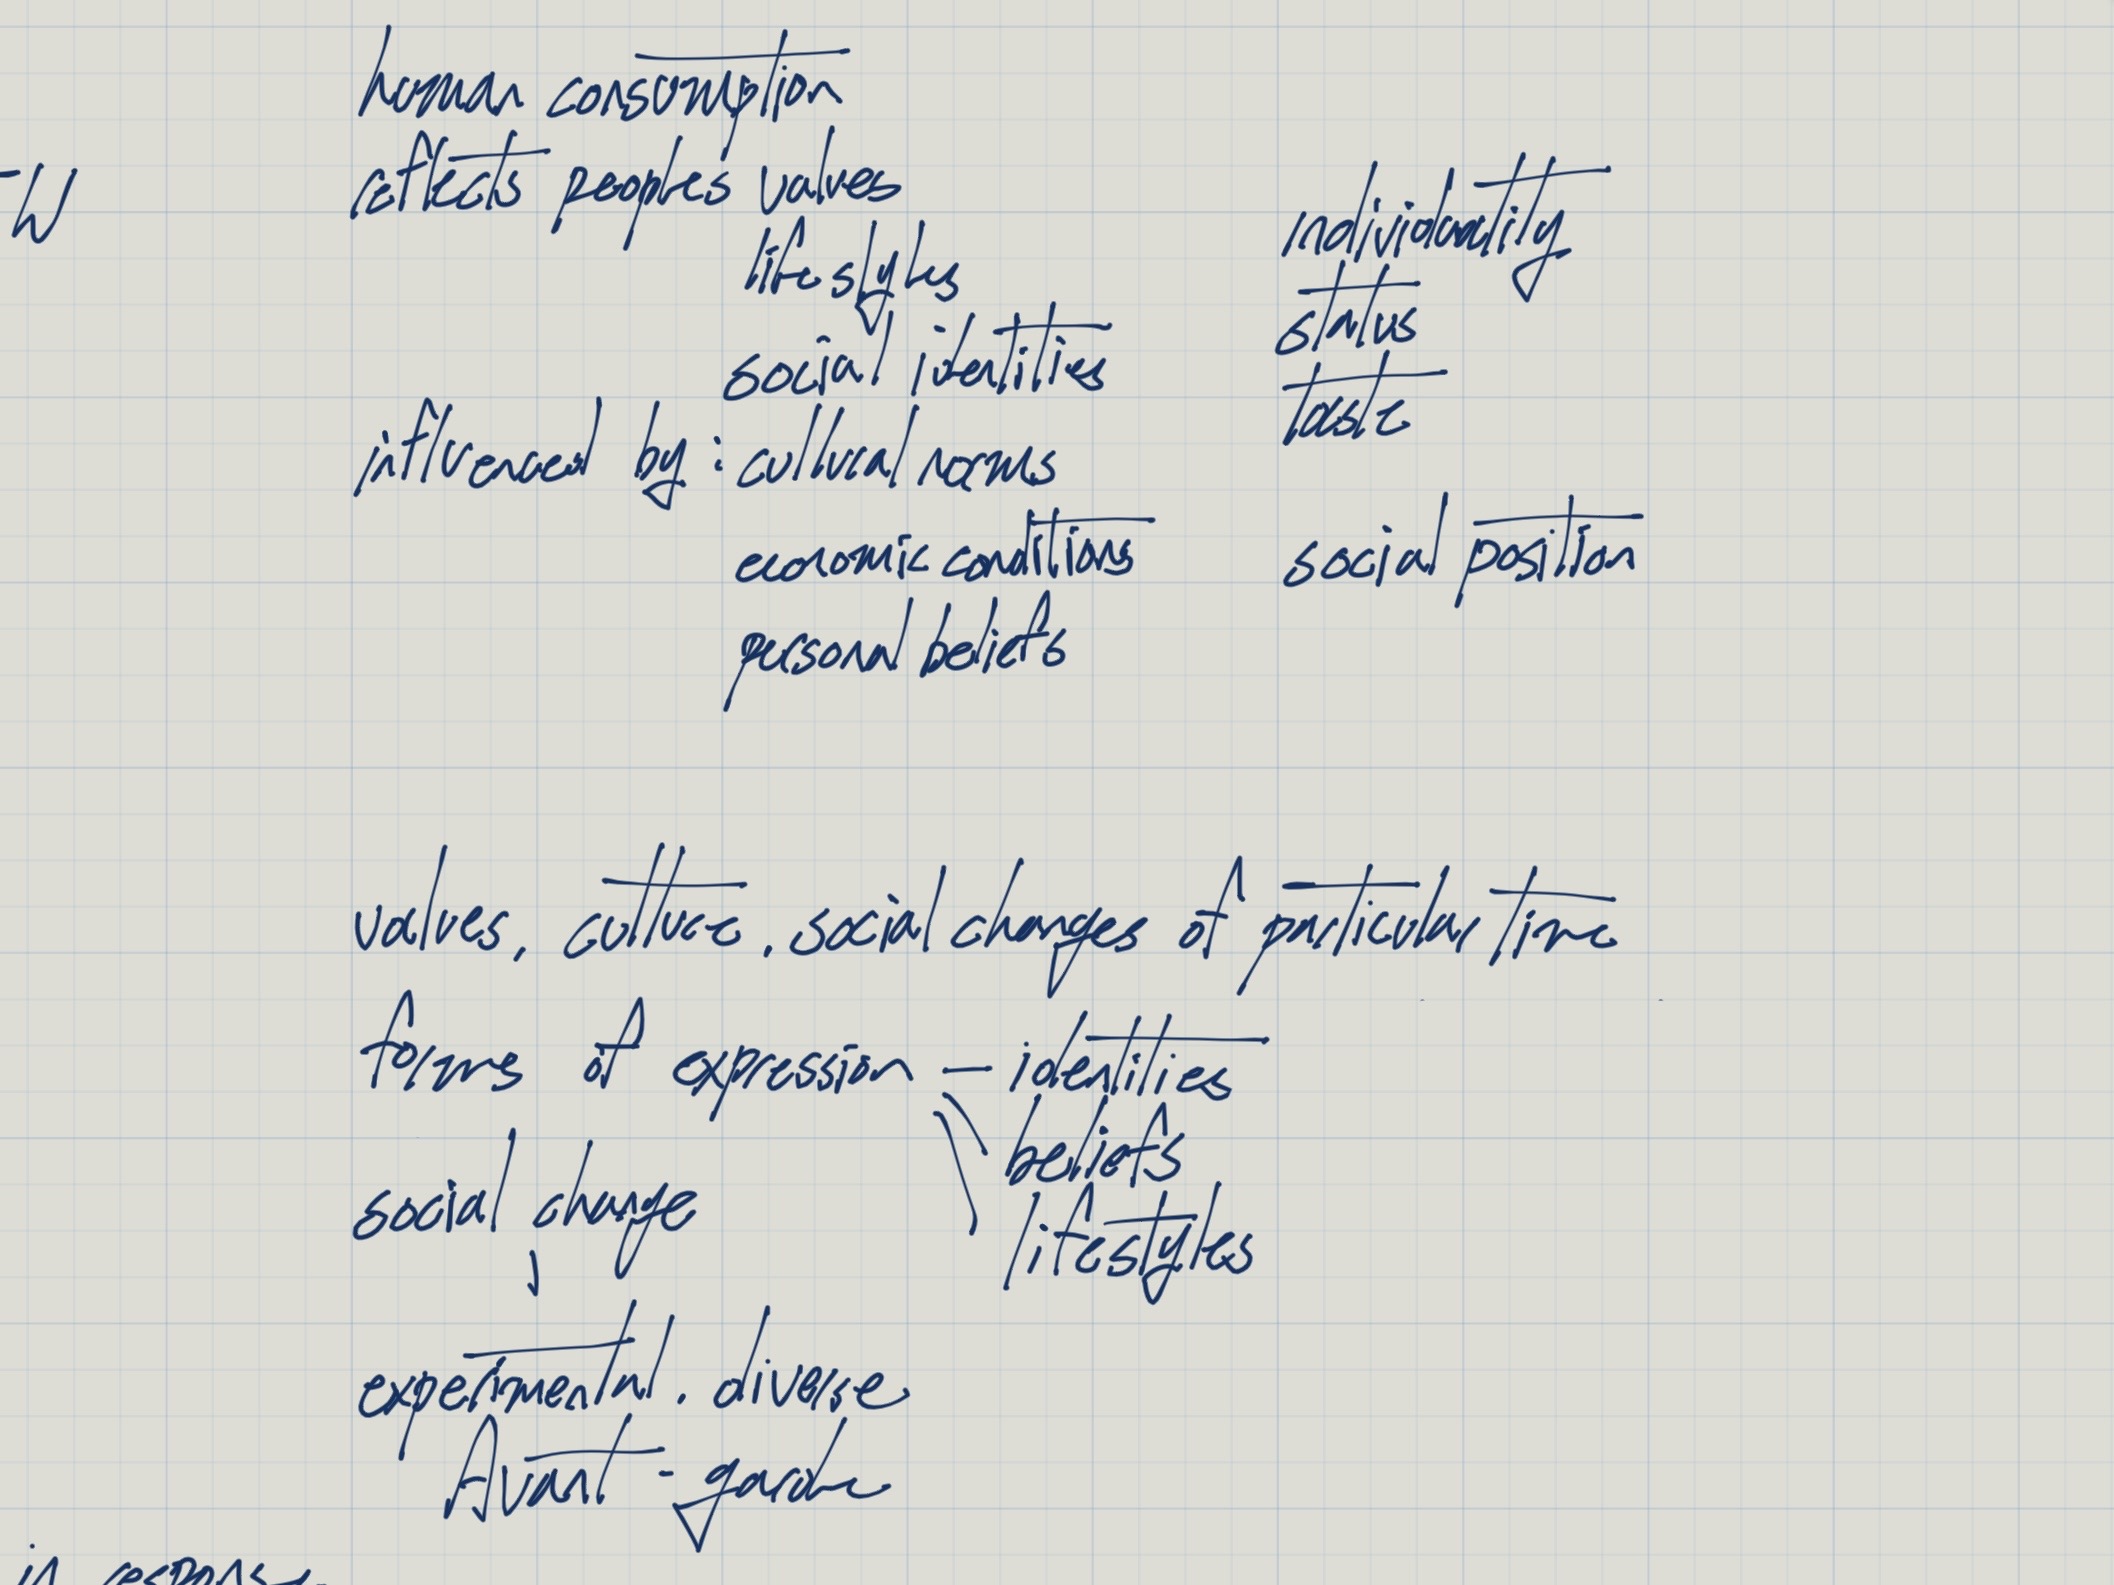 human consumption
reflects peoples values
lifestyles
social identities
influenced by : cultural norms
economic conditions
personal beliefs
individuality
status
taste
social position
W
values, culture, social changes of particular time
forms of expression — identities
beliefs
lifestyles
social change
experimental, diverse
Avant-garde
in response